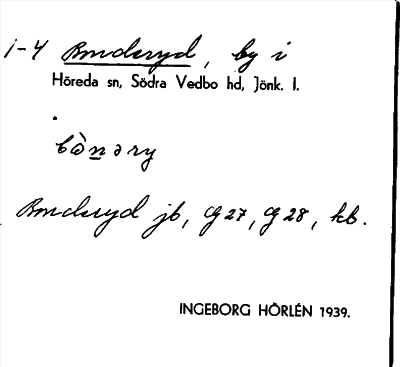 1-4 Bonderyd, by i
Höreda sn, Södra Vedbo hd, Jönk. l.
Bonderyd jb, G 27, G 28, kb.
INGEBORG HÖRLÉN 1939.